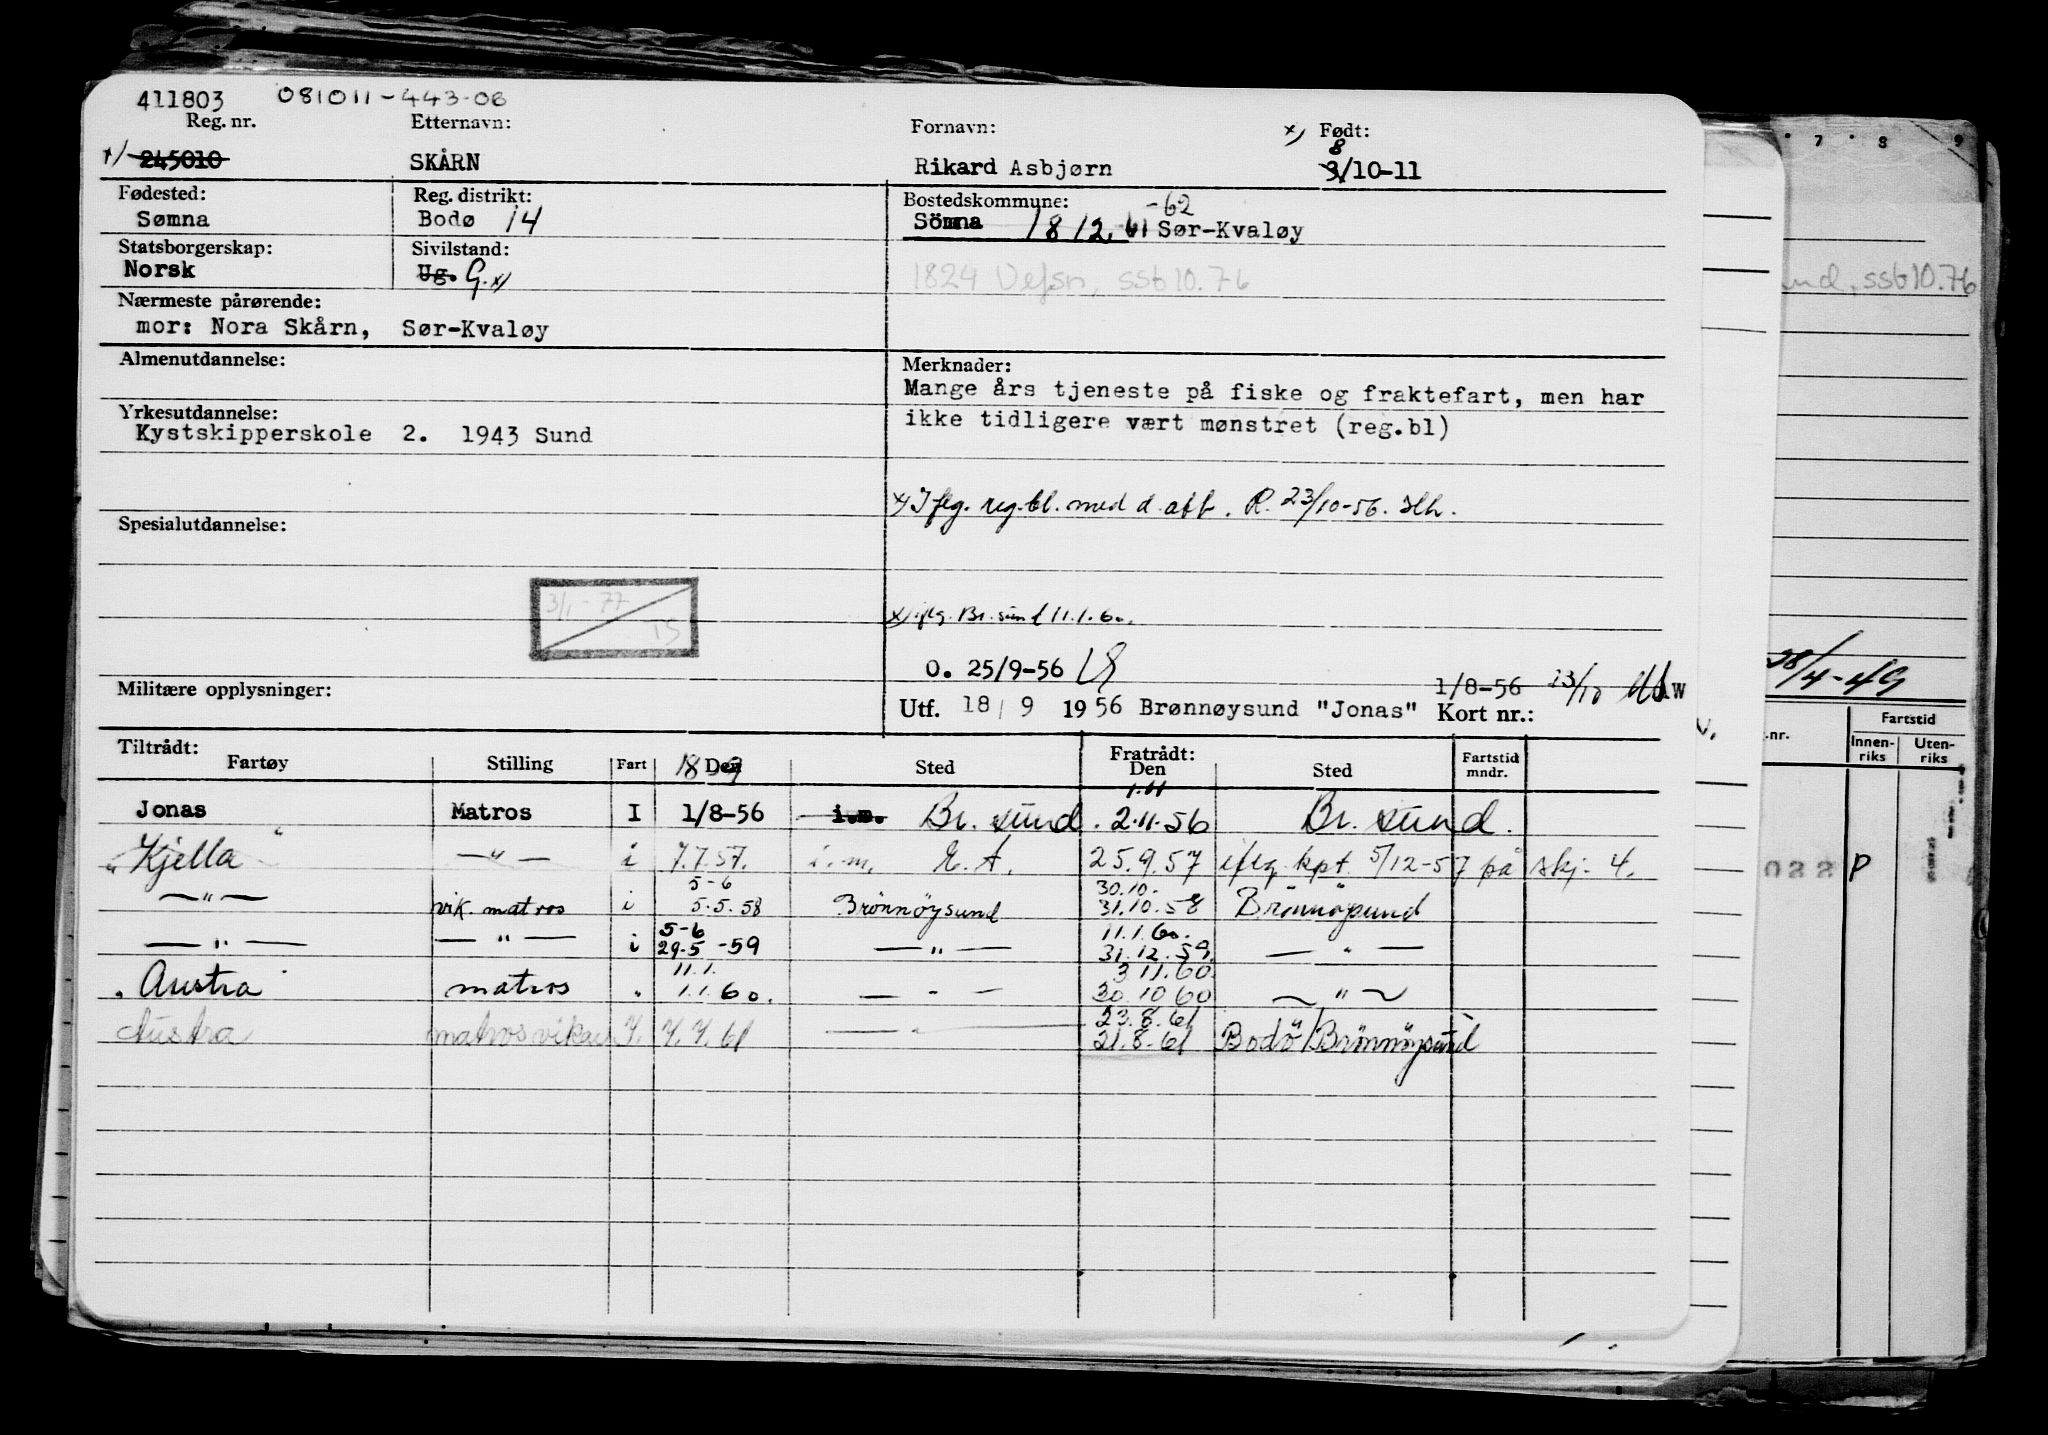 411803 081011-443-06
Reg. nr. Etternavn: Fornavn: x) Født:
x) 245010 SKÅRN Rikard Asbjørn 8 3/10-11
Fødested: Reg. distrikt: Bostedskommune:
Sømna Bodø 14 Sömna 1812. 61 -62 Sør-Kvaløy
Statsborgerskap: Sivilstand:
Norsk Ug. G. x) 1824 Vefsn, ssb 10.76
Nærmeste pårørende:
mor: Nora Skårn, Sør-Kvaløy
Almenutdannelse: Merknader:
Mange års tjeneste på fiske og fraktefart, men har
Yrkesutdannelse:
ikke tidligere vært mønstret (reg.bl)
Kystskipperskole 2. 1943 Sund
x) Iflg. reg.bl. med d. aft. R. 23/10-56.
Spesialutdannelse:
3/1-77
TS
x) iflg. Br.sund 11.1.60.
O. 25/9-56
Militære opplysninger: 1/8-56 23/10 W
Utf. 18/9 1956 Brønnøysund "Jonas" Kort nr.:
Tiltrådt: Fratrådt:
Fartøy Stilling Fart Den Sted Den Sted Fartstid mndr.
18-9 1.11
Jonas Matros I 1/8-56 i.m. Br. sund. 2.11.56 Br. sund.
Kjella — " — i 7.7.57. i.m. E.A. 25.9.57 iflg. kpt. 5/12-57 på skj. 4.
5-6 30.10.
— " — vik. matros i 5.5.58 Brönnöysund 31.10.58 Brönnöysund
5-6 11.1.60.
— " — — " — i 29.5-59 — " — 31.12.59. — " —
11.1. 3.11.60.
Austra matros " 1.1.60. — " — 30.10.60 — " —
23.8.61
Austra matros vikar 7.7.61 — " — 21.8.61 Bodö/Brönnöysund
7 8 9
und, ssb 10.76
28/4-49
.nr. Fartstid
Innen-riks Uten-riks
022 P